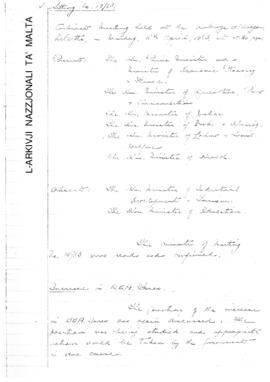 L-ARKIVJI NAZZJONALI TA' MALTA
Sitting No. 10/63.
Cabinet Meeting held at the
Valletta on Monday, April, 1963, at
Present: The Hon. Prime Minister and
Minister of Economic Planning
& Finance.
The Hon. Minister of Agriculture, Power
& Communications
The Hon. Minister of Justice
The Hon. Minister of Works & Housing
The Hon. Minister of Labour & Social
Welfare
The Hon. Minister of Health.
Absent: The Hon. Minister of Industrial
Development & Tourism
The Hon. Minister of Education.
The minutes of meeting
No. were read and confirmed.
Increase in B.E.A. Fares.
The question of the increase
in B.E.A. fares was again discussed. The
position was being studied and appropriate
action would be taken by the Government
in due course.